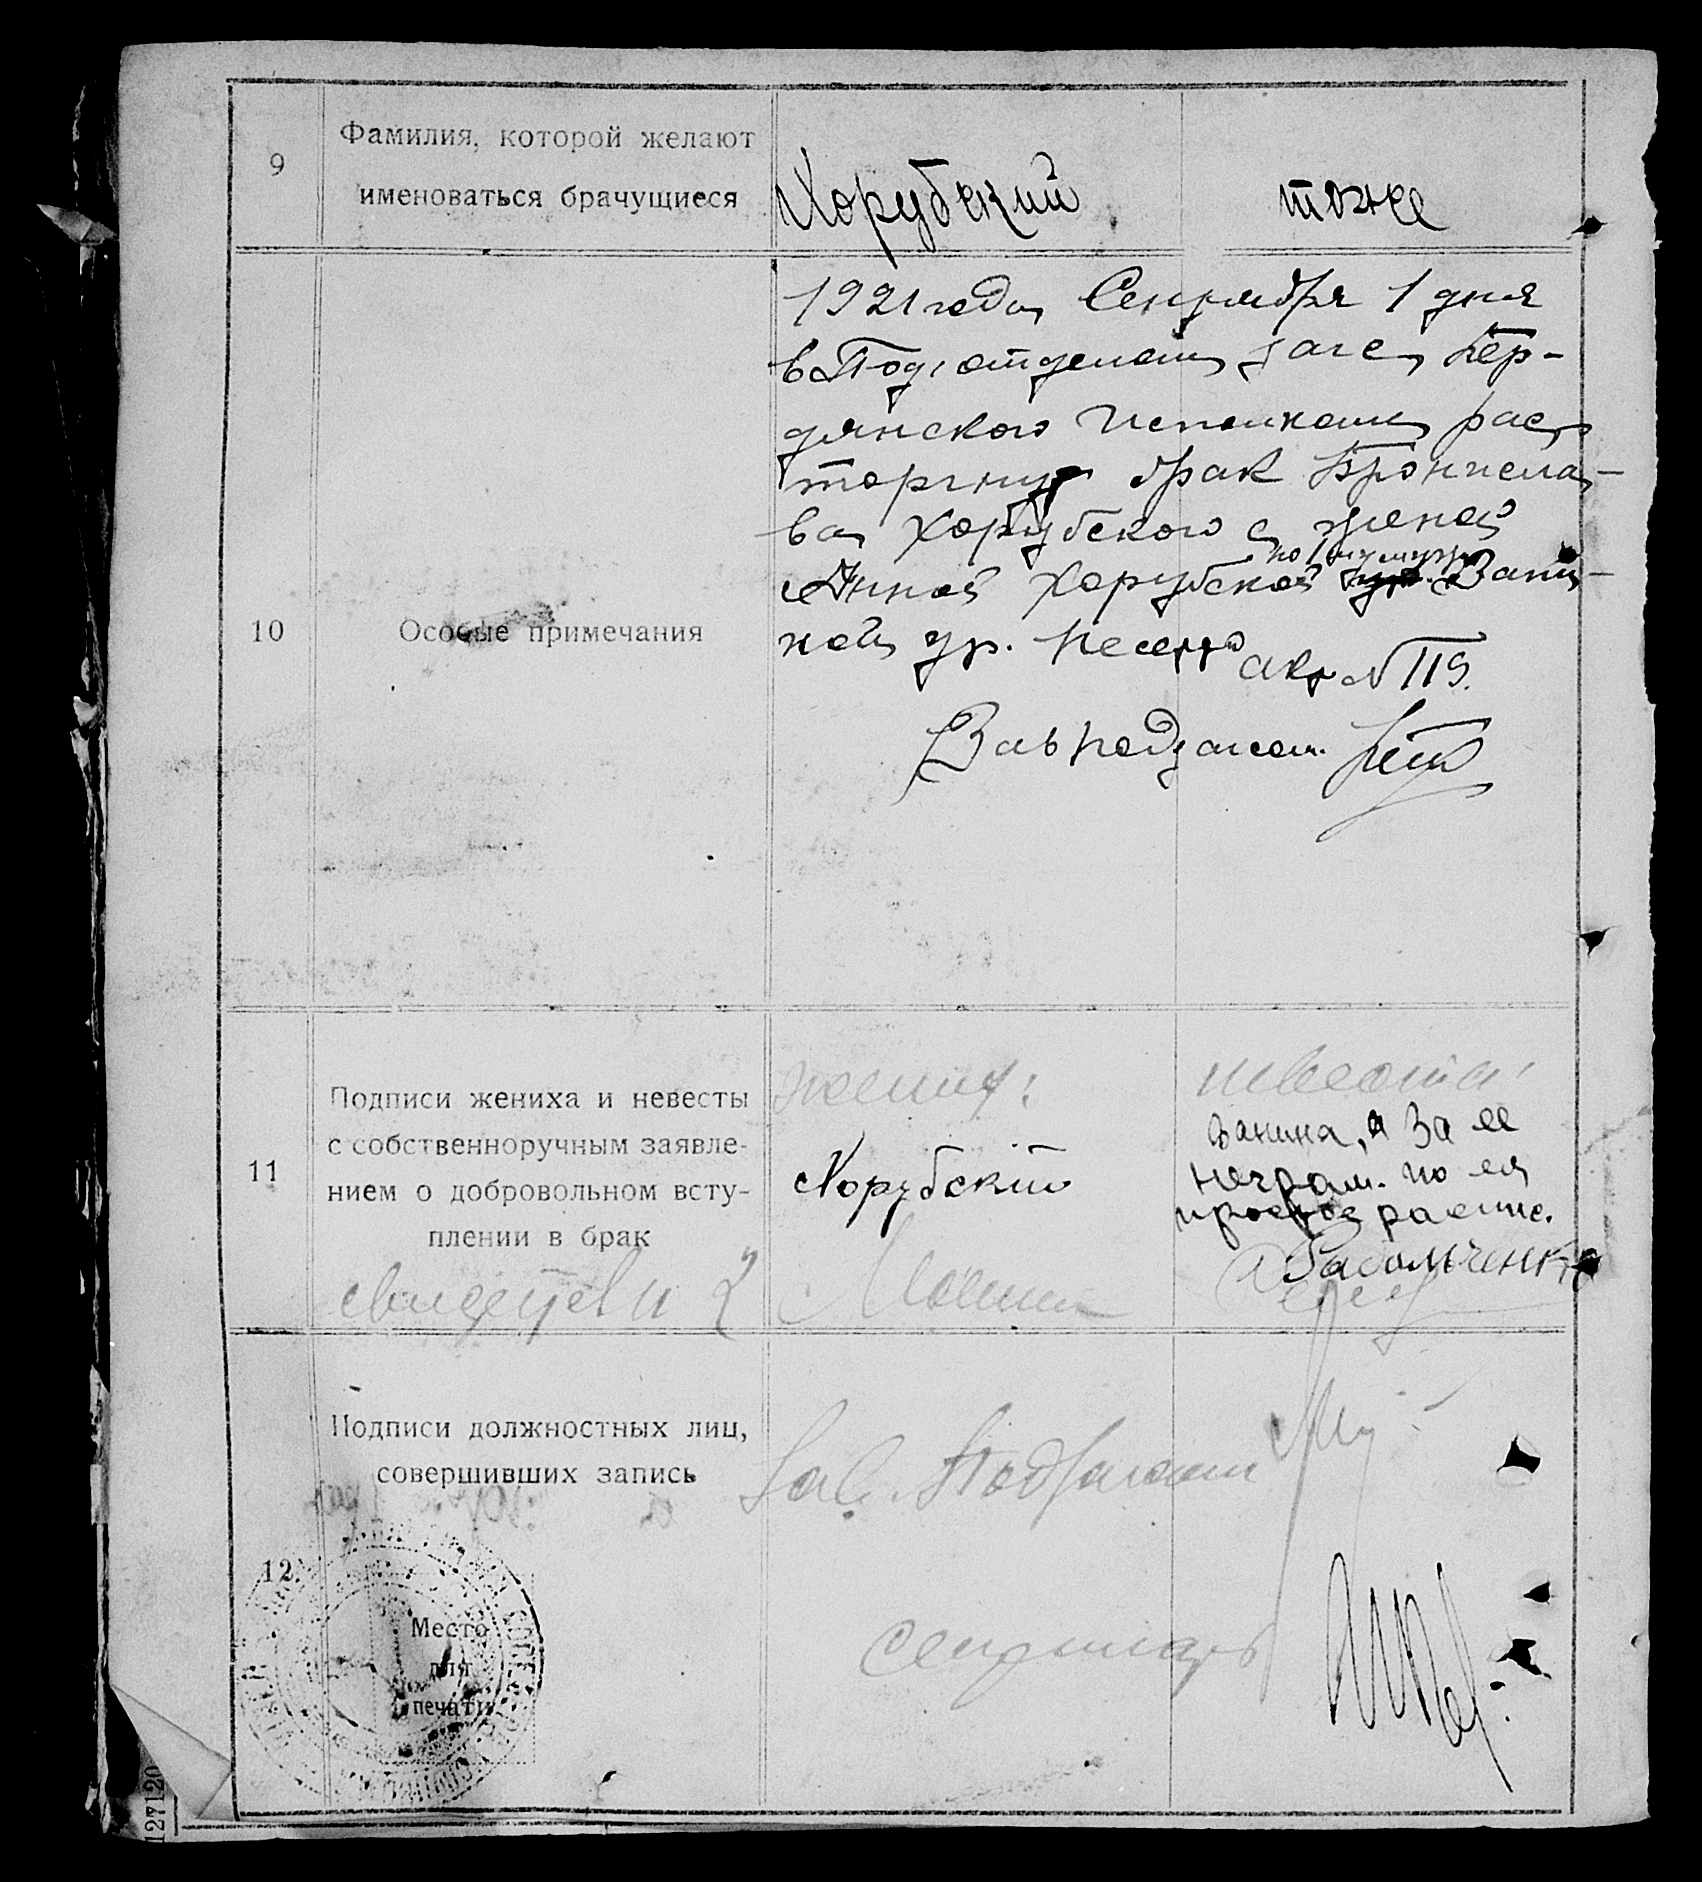 9
Фамилия, которой желают
именоваться брачущиеся
Хорубский
тоже
10
Особые примечания
1921 года Сентября 1 дня
в Под,отделом загс, Бер-
дянского Исполкома рас
торгнут брак Бронисла-
ва Хорубского с женой
Анной Хорубской Вани-
ной, ур.
по 1 му мужу
акт № 119.
Завподзагсом.
11
Подписи жениха и невесты
с собственноручным заявле-
нием о добровольном всту-
плении в брак
жених:
Хорубский
невеста:
Ванина, а за ее
неграм. по ея
просьбе распис.
свидетели 2
12
Подписи должностных лиц,
совершивших запись
Зав. Подзагсом
Секретарь
Место
для
печати
127120